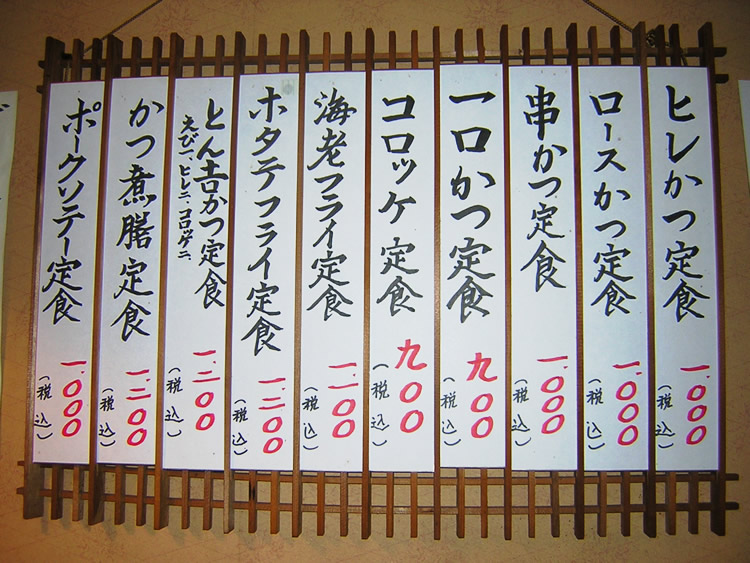 ヒレかつ定食
一、〇〇〇
(税込)
ロースかつ定食
一、〇〇〇
(税込)
串かつ定食
一、〇〇〇
(税込)
一口かつ定食
九〇〇
(税込)
コロッケ定食
九〇〇
(税込)
海老フライ定食
一、一〇〇
(税込)
ホタテフライ定食
一、二〇〇
(税込)
とん吉かつ定食
えび一、ヒレ二、コロッケ二、
一、二〇〇
(税込)
かつ煮膳定食
一、二〇〇
(税込)
ポークソテー定食
一、〇〇〇
(税込)